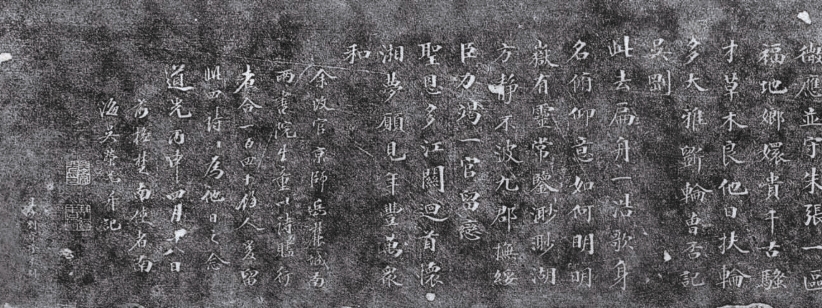 徵應並守朱張一區
福地嫏嬛貴千古騷
才草木良他日扶輪
多大雅斵輪曾否記
吳劉
此去扁舟一浩歌身
名俯仰意如何明明
嶽有靈常鑒渺渺湖
方靜不波九郡撫綏
臣力竭一官留戀
聖恩多江關迴首懷
湘夢願見年豐萬眾
和
余改官京師嶽麓城南
兩書院生童以詩贈行
者合一百四十餘人爰留
此四詩為他日之念
道光丙申四月十八日
前撫楚南使者南
海吳榮光并記